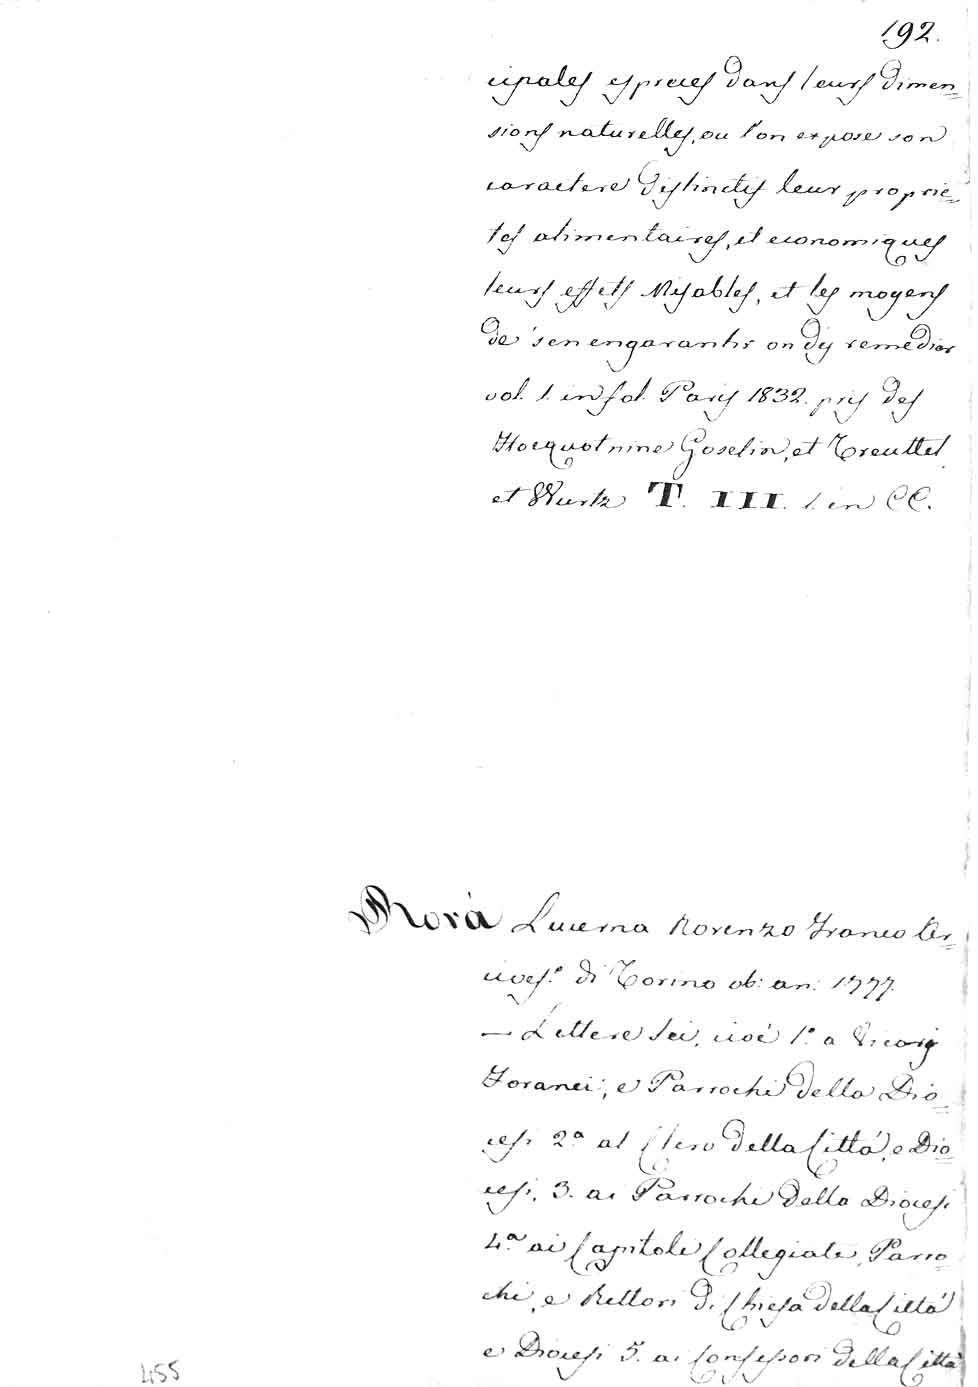 192.
cipales especes dans leurs dimen=
sions naturelles, ou l'on expose son
caractere distinctif leur proprie=
tes alimentaires, et economiques
leurs effets Nisables, et les moyens
de s'en engarantir on d'ij remedier
vol. 1. in fol. Paris 1832. pris des
Hocquot nine Goselin, et Treuttel
et Wurtz T. III. 1. in CC.
Rorà Lucerna Rorenzo Franco Ar=
cives.º di Torino ob: an: 1777.
— Lettere sei, cioè 1.ª a Vicarij
Foranei, e Parrochi della Dio=
cesi 2.ª al Clero della Città, e Dio=
cesi, 3. ai Parrochi della Diocesi
4.ª ai Capitoli Collegiate, Parro
chi, e Rettori di Chiesa della Città
e Diocesi 5. ai Confessori della Città
455